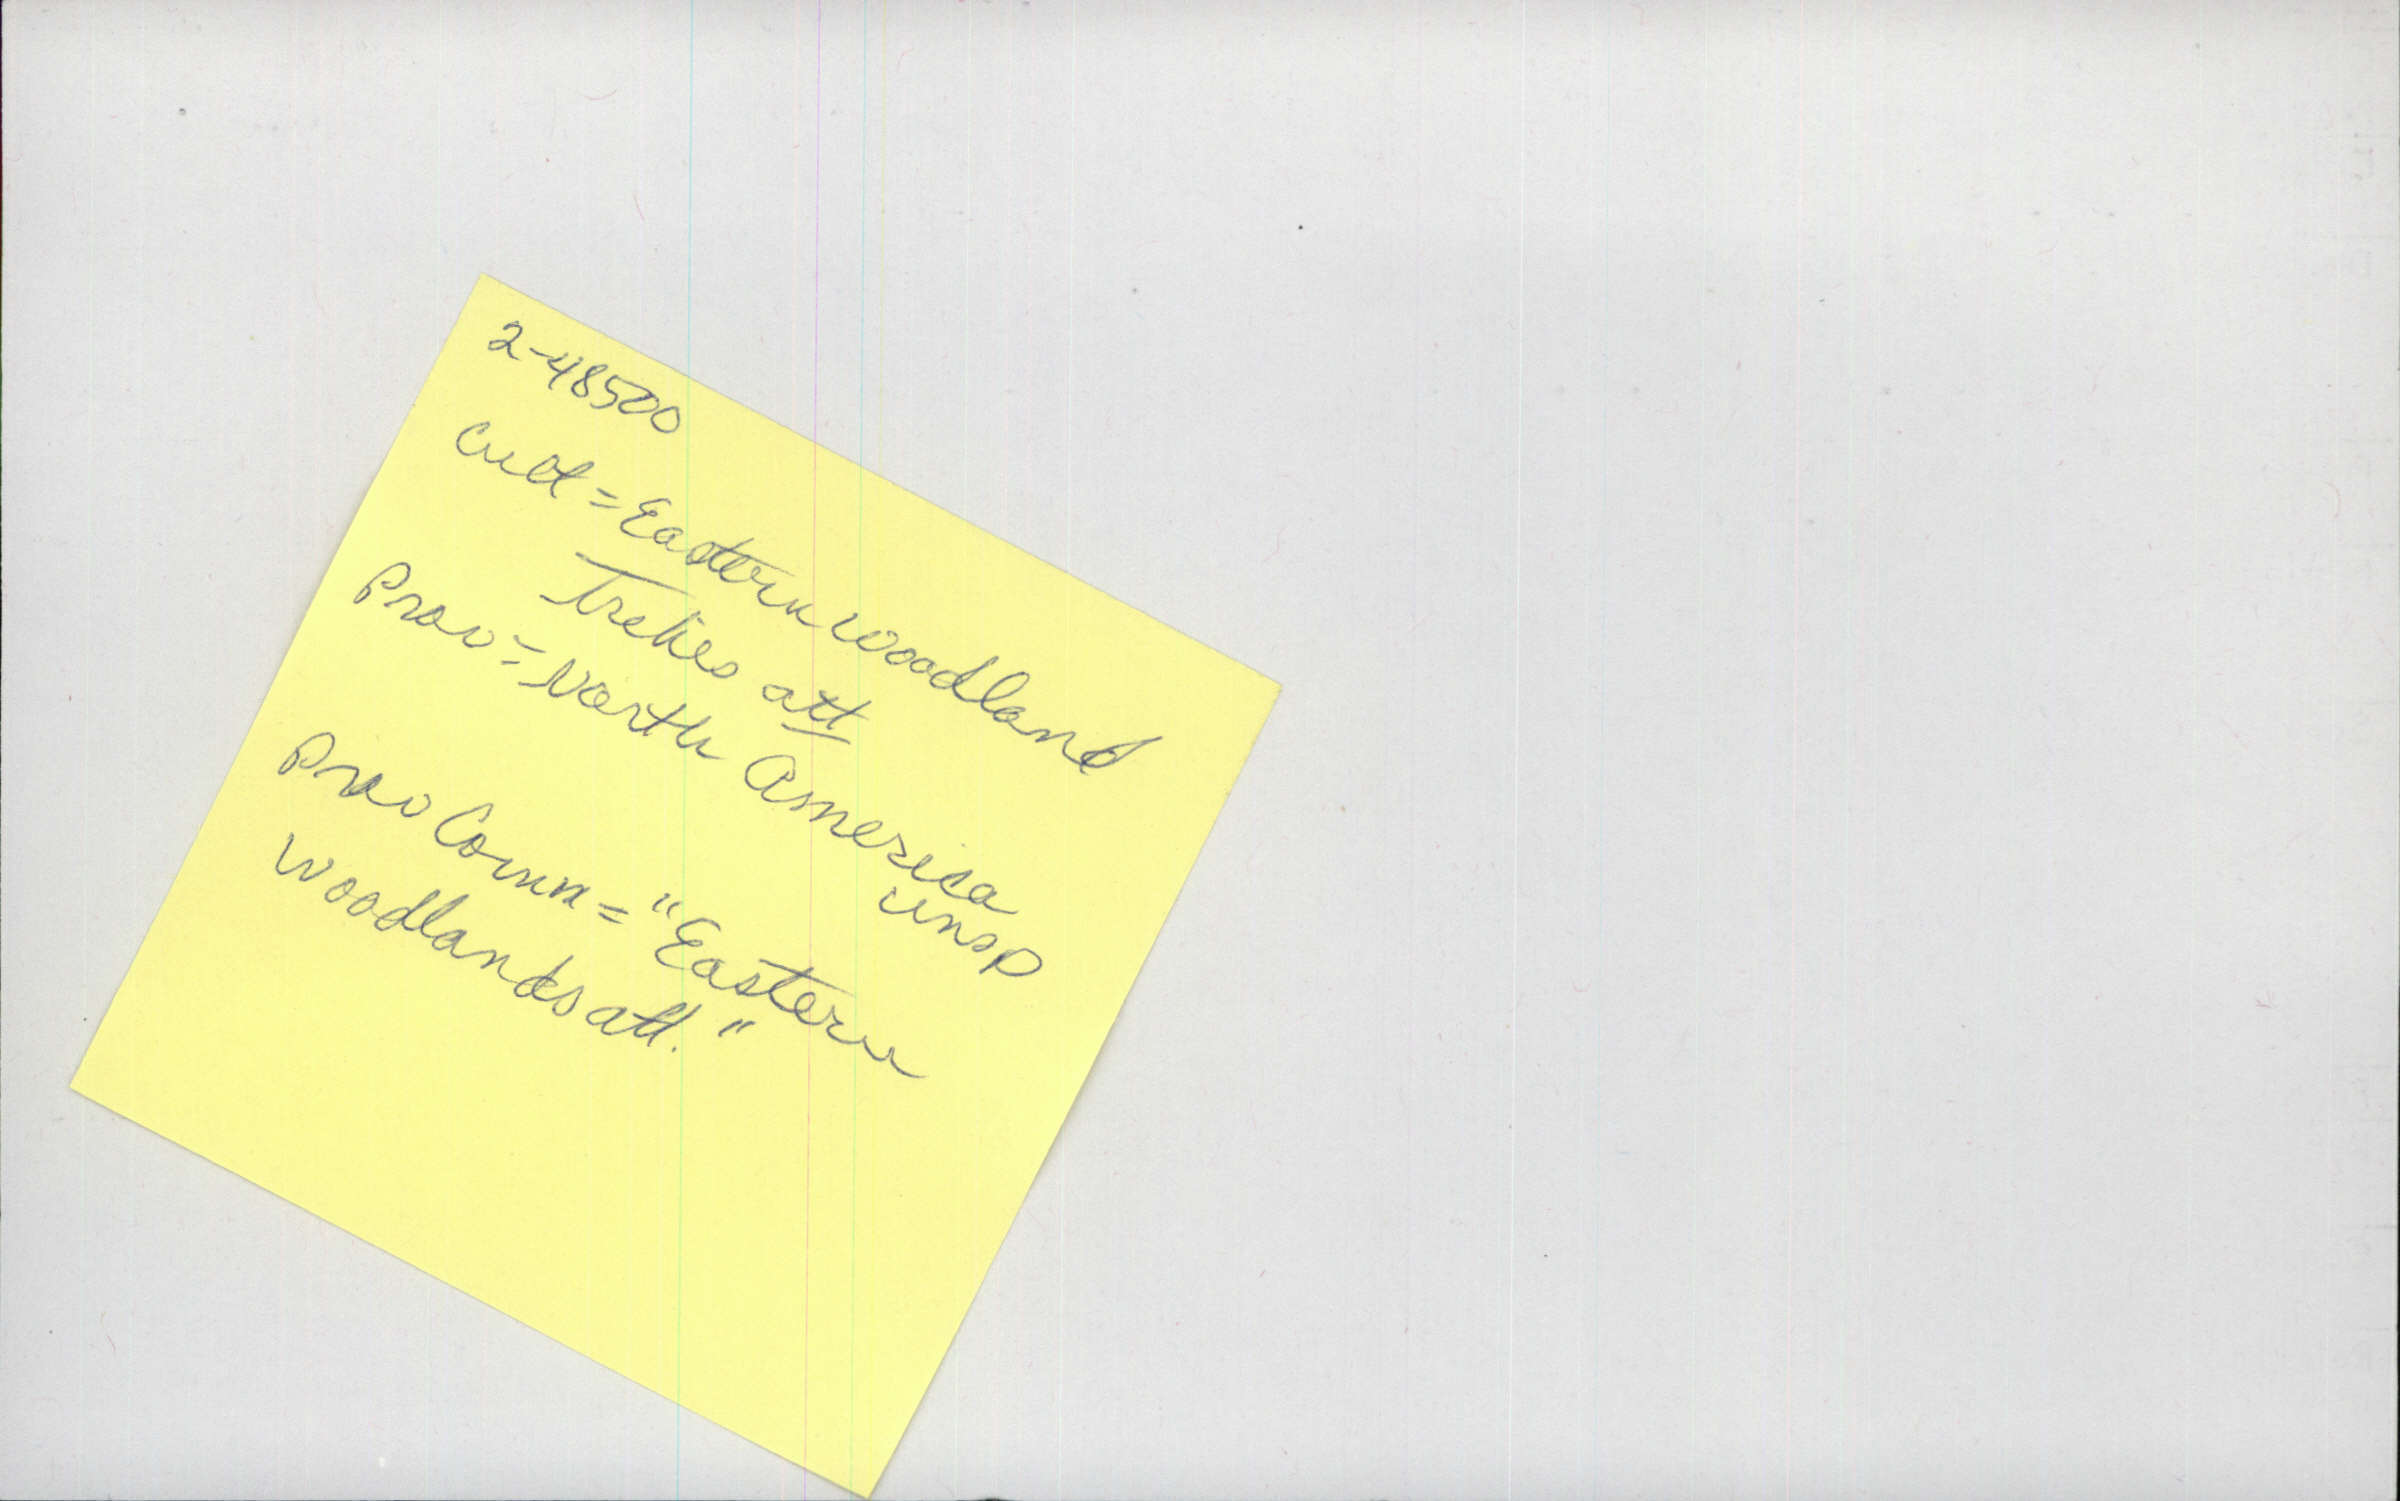 2-48500
Cult = Eastern Woodland
Tribes att
Prov = North America
unsp
Prov Comm = "Eastern
Woodlands att."